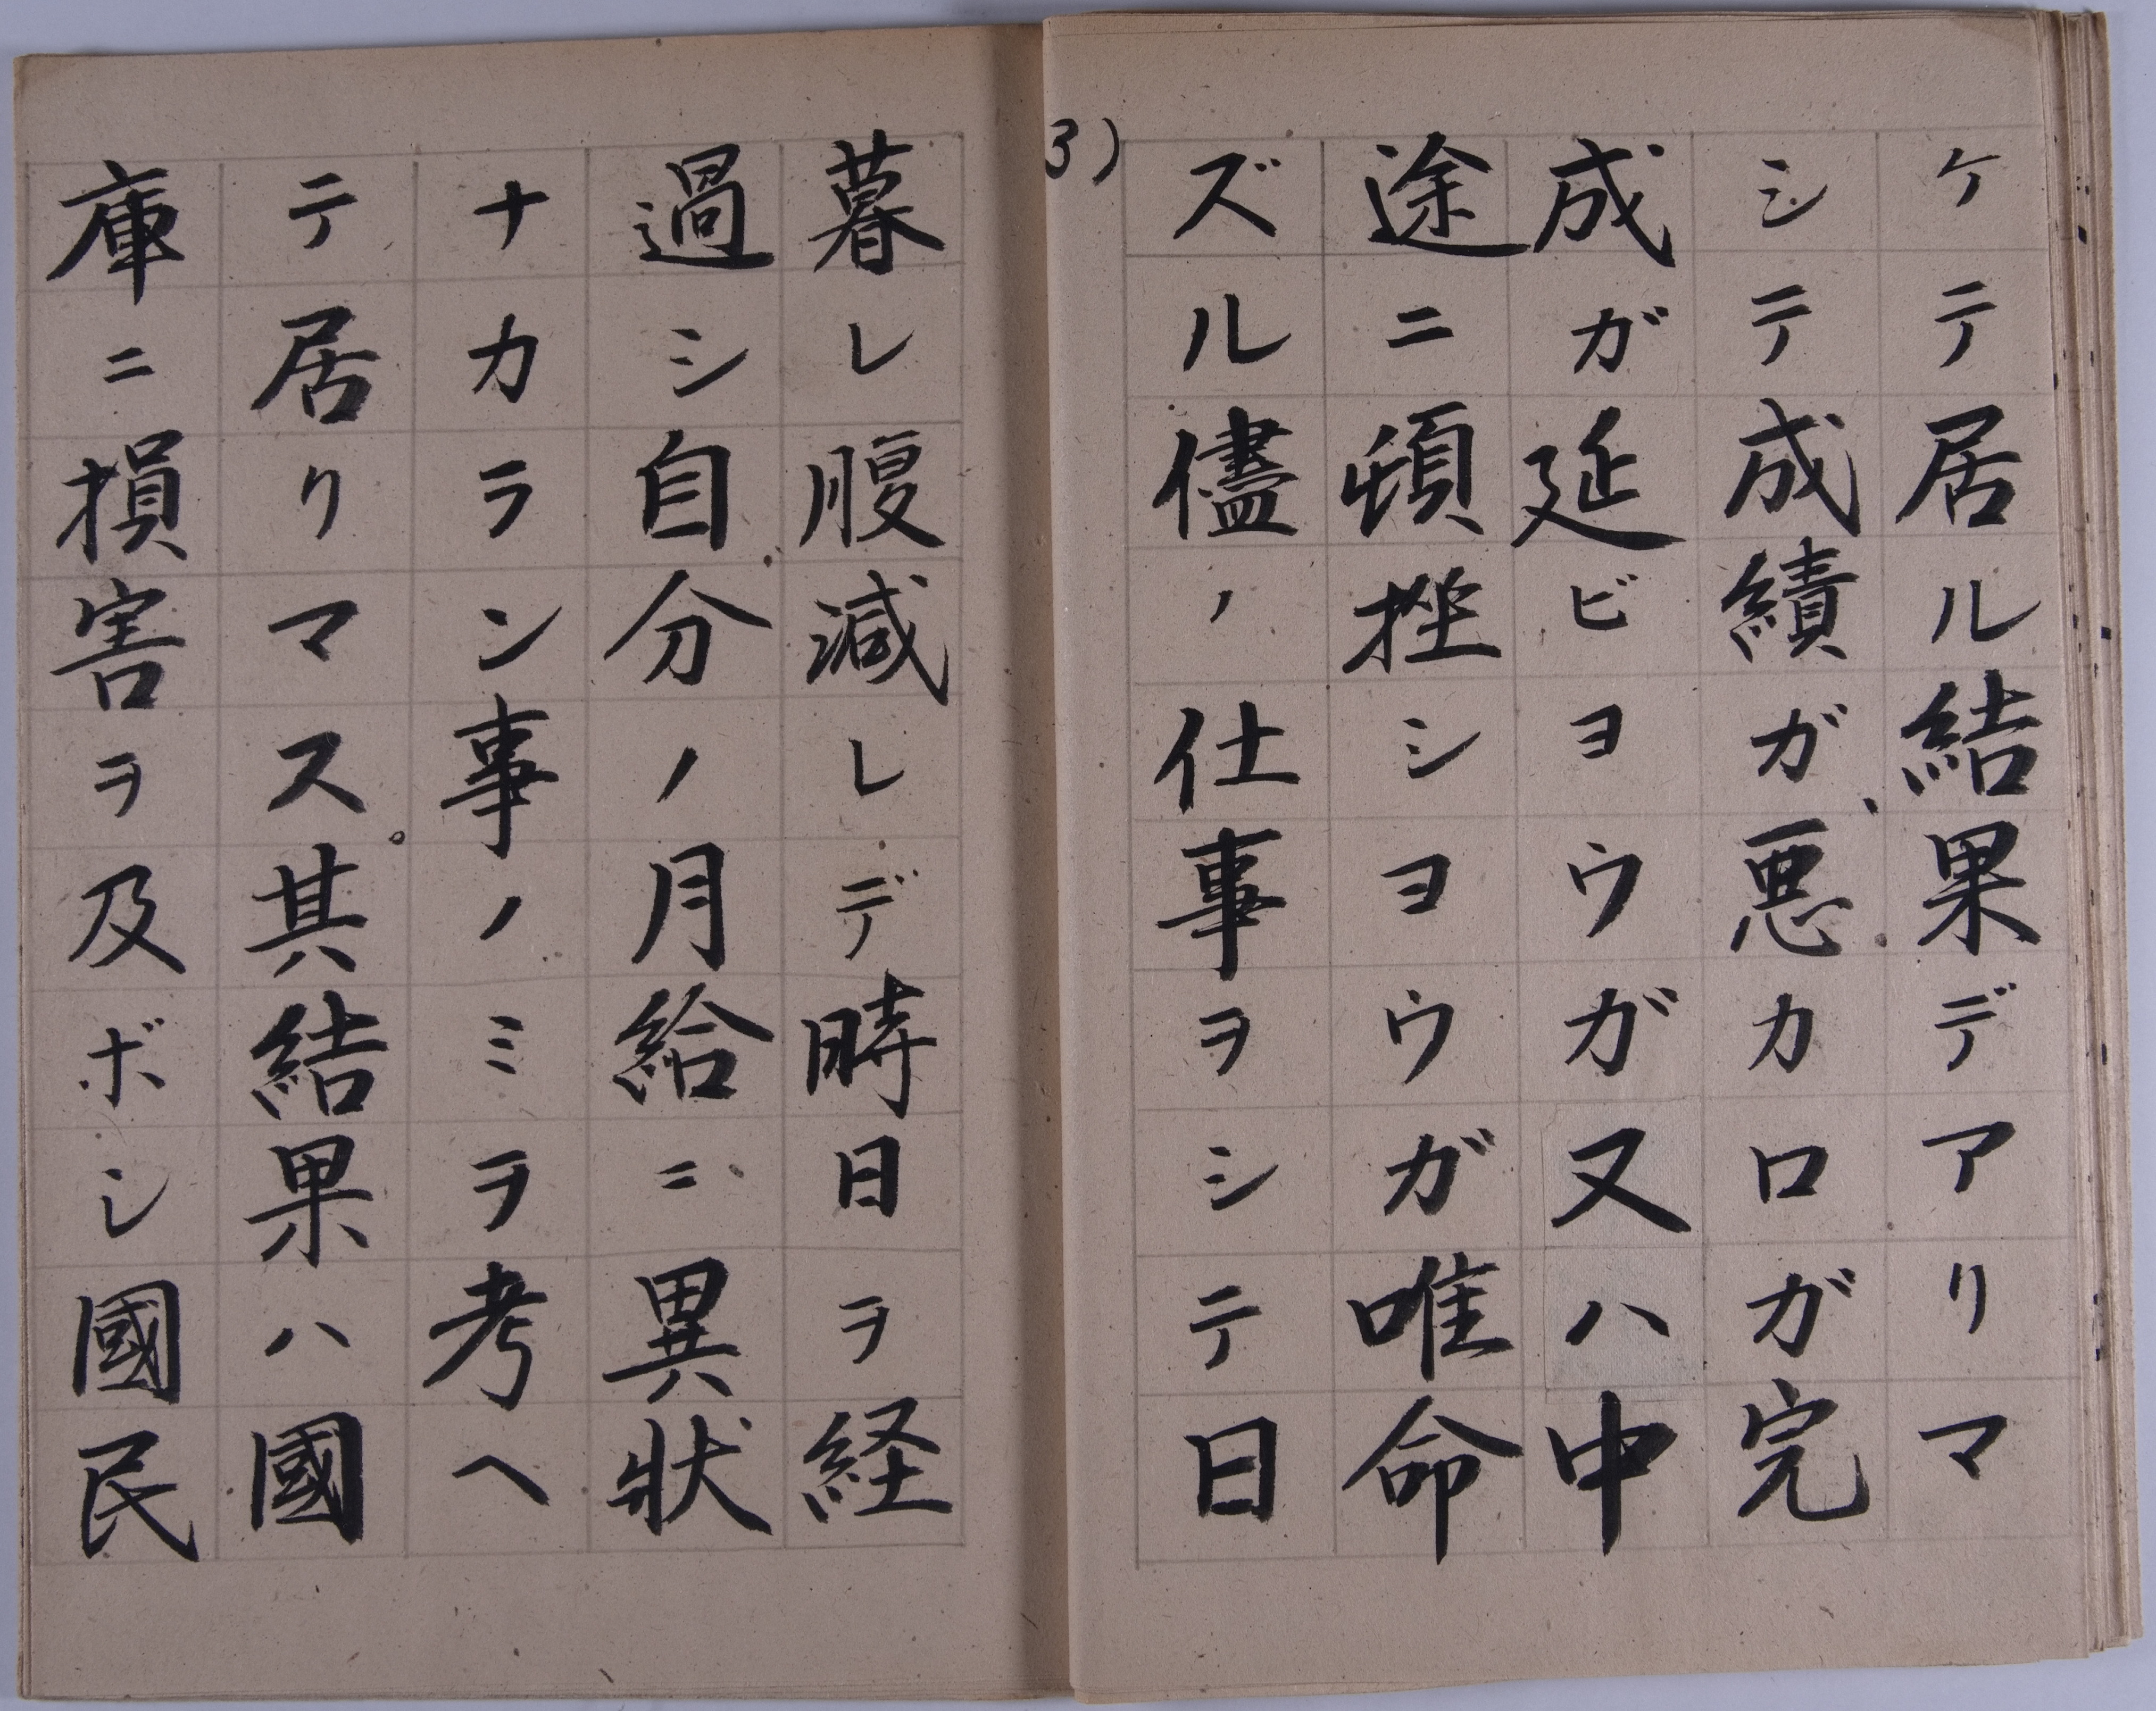 ケテ居ル結果デアリマ
シテ成績ガ、悪カロガ完
成ガ延ビヨウガ又ハ中
途ニ頓挫シヨウガ唯命
ズル儘ノ仕事ヲシテ日
3)
暮レ腹減レデ時日ヲ経
過シ自分ノ月給ニ異状
ナカラン事ノミヲ考ヘ
テ居リマス。其結果ハ國
庫ニ損害ヲ及ボシ國民